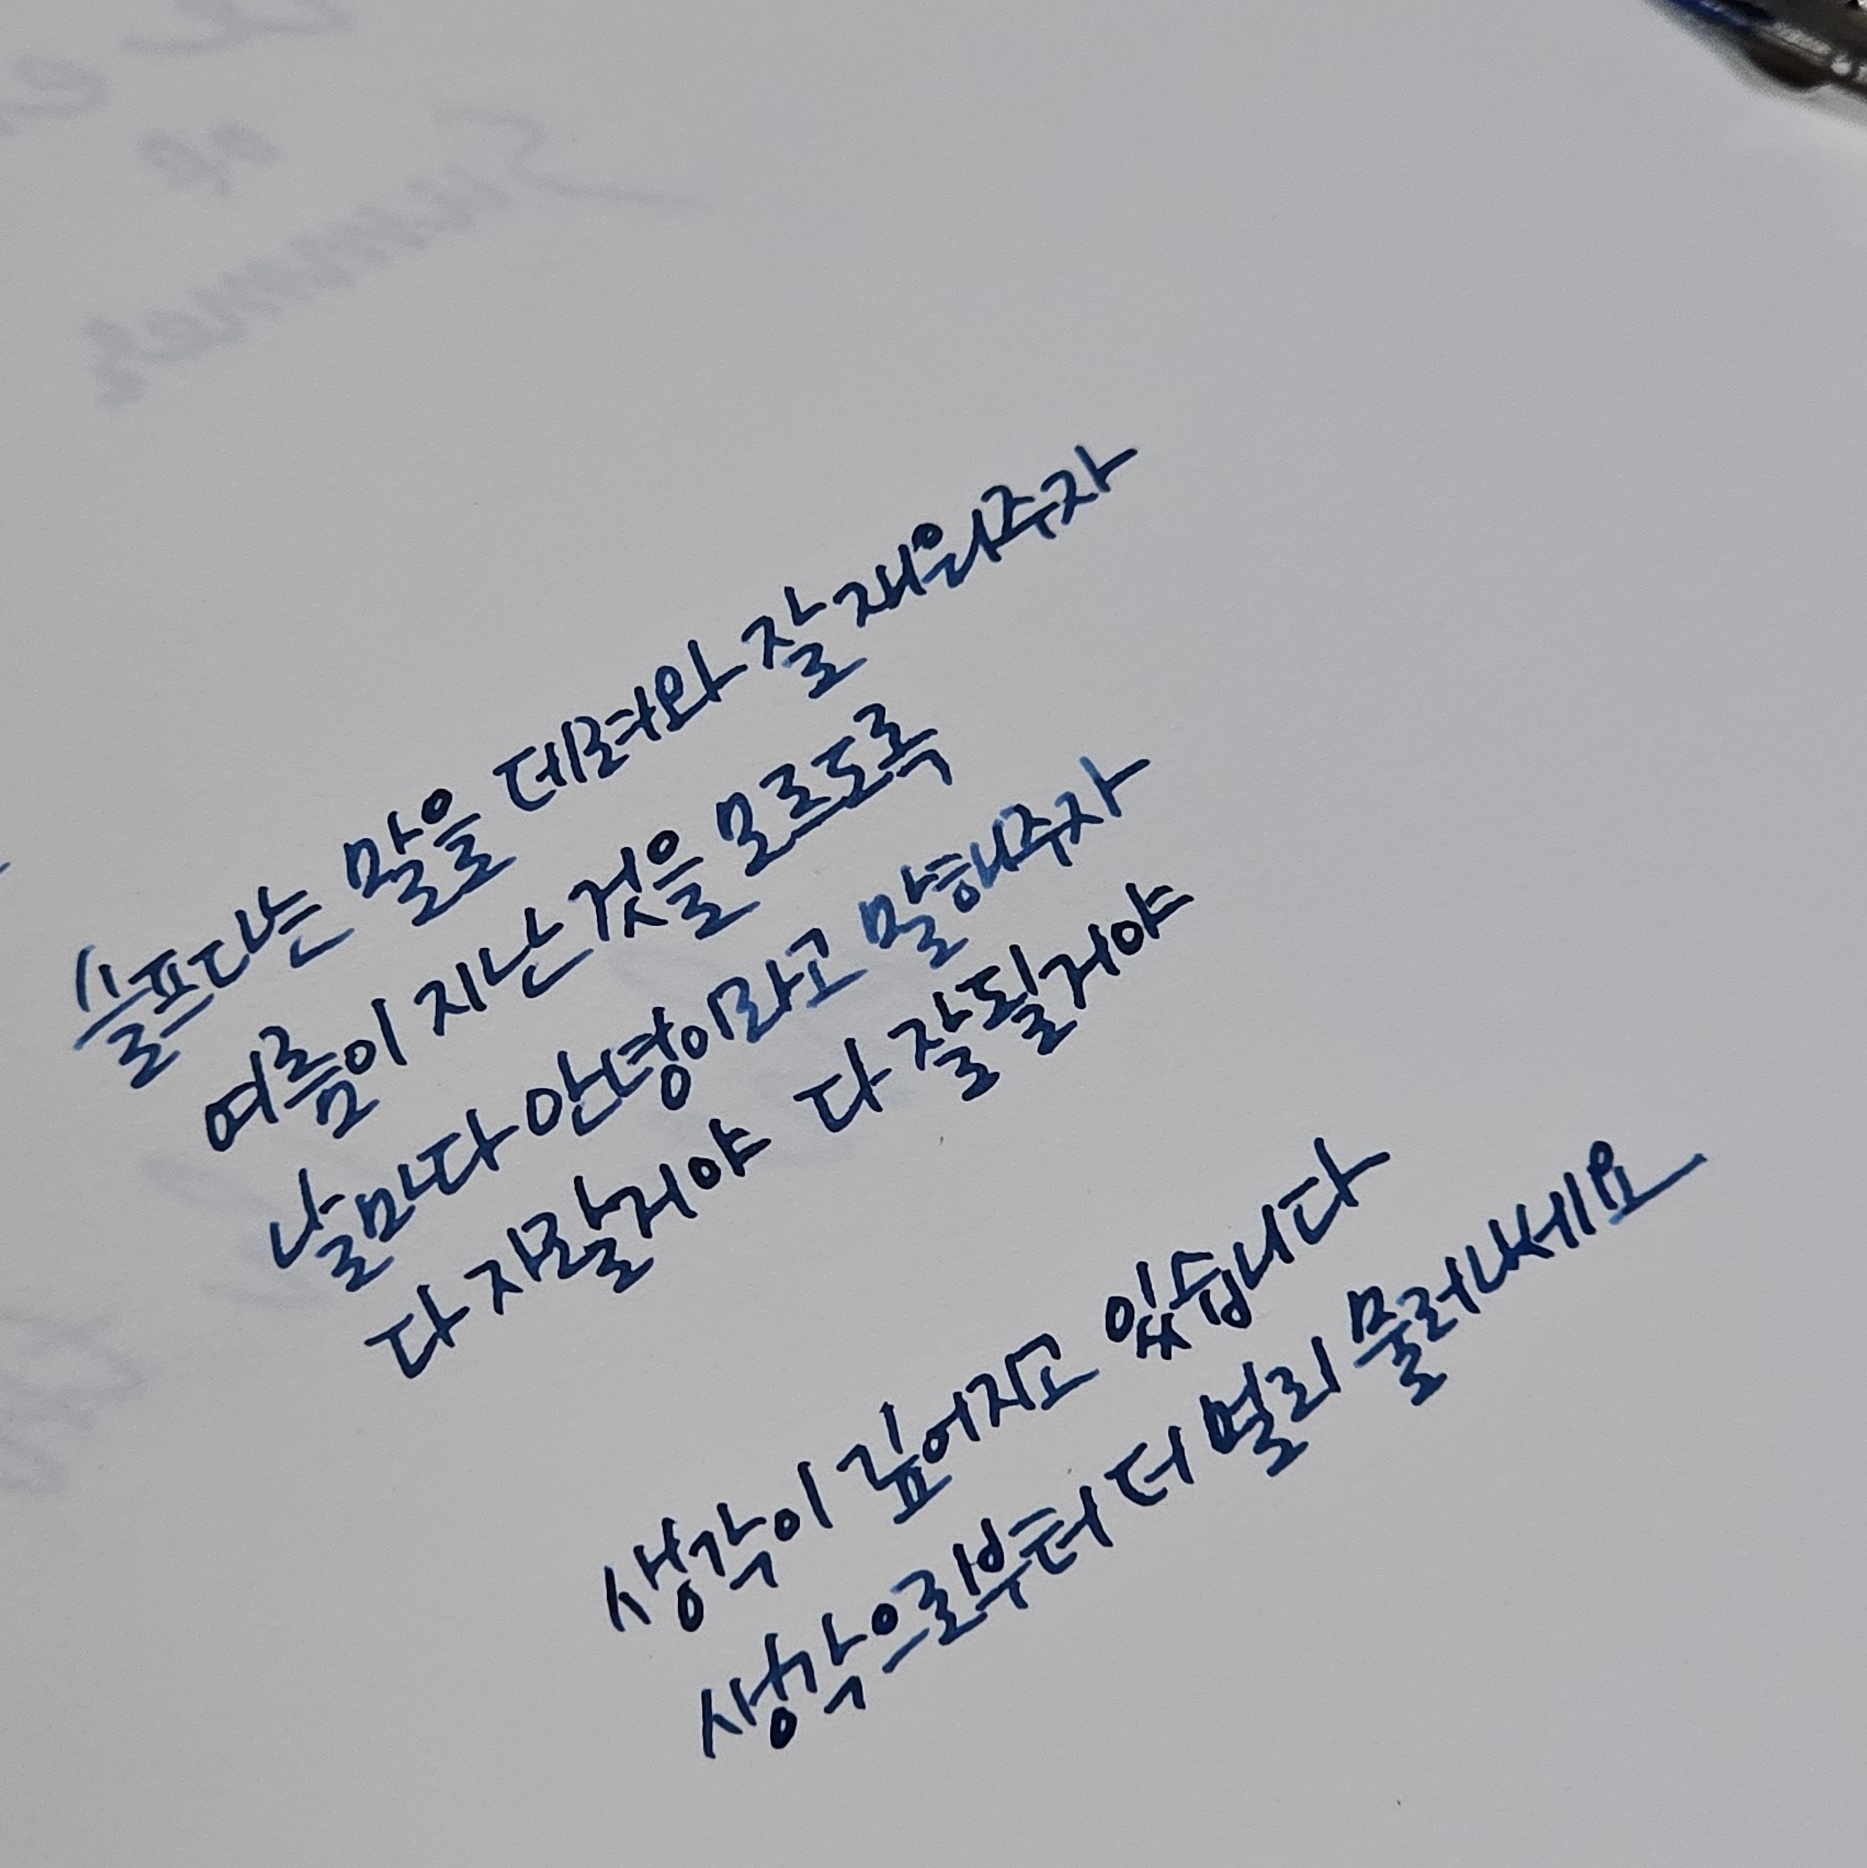 슬프다는 말을 데려와 잘 재워주자
여름이 지난 것을 모르도록
날마다 안녕이라고 말해주자
다 자랄거야 다 잘될거야
생각이 깊어지고 있습니다
생각으로부터 더 멀리 물러나세요